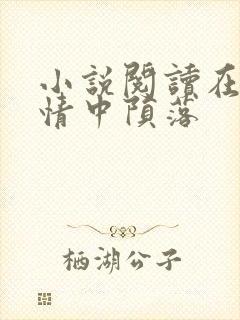 小說閱讀在
情中隕落
栖湖公子